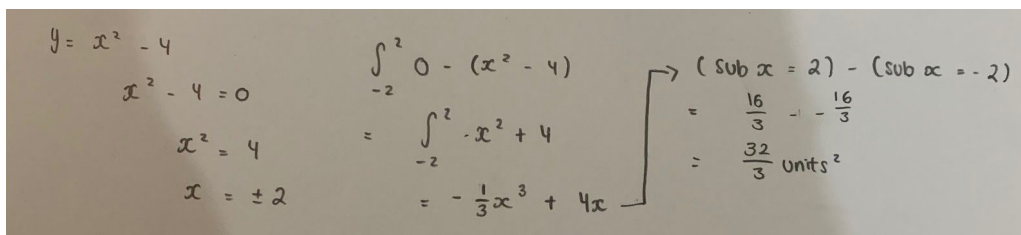 y = x² - 4
x² - 4 = 0
x² = 4
x = ± 2
∫₋₂² 0 - (x² - 4)
= ∫₋₂² -x² + 4
= - 1/3 x³ + 4x
→ (sub x = 2) - (sub x = -2)
= 16/3 - - 16/3
= 32/3 units²